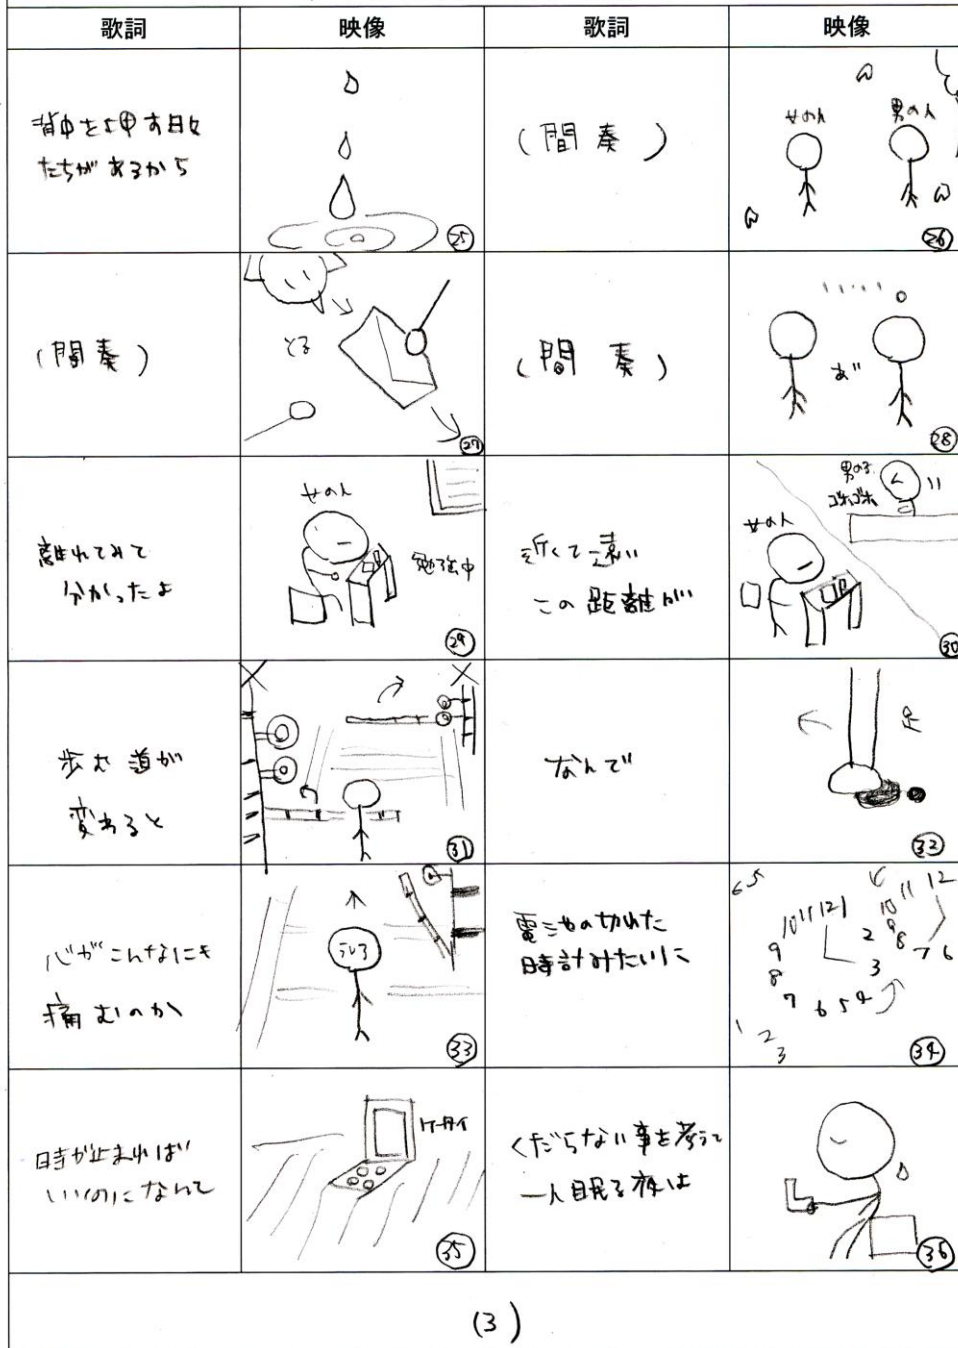 歌詞
映像
歌詞
映像
背中を押す日々
たちがあるから
㉕
(間奏)
女の人
男の人
㉖
(間奏)
とる
㉗
(間奏)
あ"
㉘
離れてみて
分かったよ
女の人
勉強中
㉙
近くて遠い
この距離が
女の人
男の子
ゴホゴホ
㉚
歩む道が
変わると
㉛
なんで
足
㉜
心がこんなにも
痛むのか
㉝
電池の切れた
時計みたいに
6 5
10 11 12 1
9
8
7
6 5 4
3
2
1
2
3
10 11 12
9
8
7 6
㉞
時が止まれば
いいのになんて
ケータイ
㉟
くだらない事を考えて
一人眠る夜は
㊱
(3)